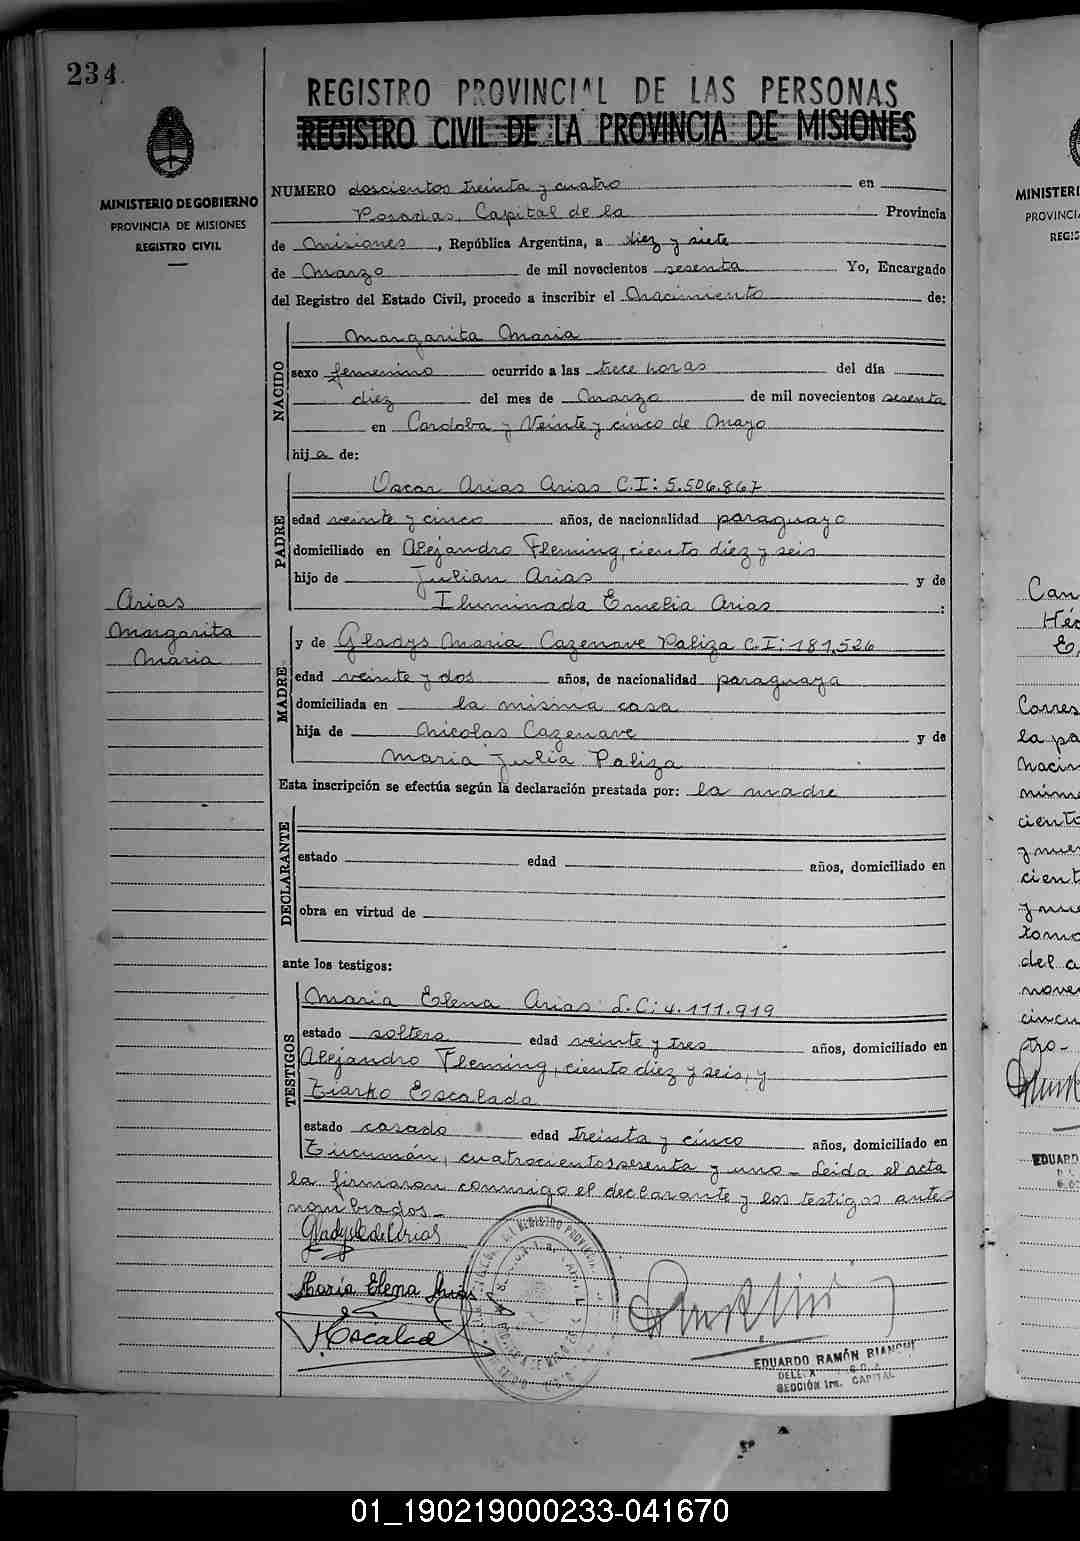 234.
MINISTERIO DE GOBIERNO
PROVINCIA DE MISIONES
REGISTRO CIVIL
Arias
Margarita
Maria
REGISTRO PROVINCIAL DE LAS PERSONAS
REGISTRO CIVIL DE LA PROVINCIA DE MISIONES
NUMERO doscientos treinta y cuatro en
Posadas, Capital de la Provincia
de Misiones, República Argentina, a diez y siete
de Marzo de mil novecientos sesenta Yo, Encargado
del Registro del Estado Civil, procedo a inscribir el Nacimiento de:
NACIDO
Margarita Maria
sexo femenino ocurrido a las trece horas del día
diez del mes de Marzo de mil novecientos sesenta
en Cordoba y Veinte y cinco de Mayo
hija de:
PADRE
Oscar Arias Arias C.I: 5.506.867
edad veinte y cinco años, de nacionalidad paraguayo
domiciliado en Alejandro Fleming, ciento diez y seis
hijo de Julian Arias y de
Iluminada Emelia Arias :
MADRE
y de Gladys Maria Cazenave Paliza C.I: 181,526
edad veinte y dos años, de nacionalidad paraguaya
domiciliada en la misma casa
hija de Nicolas Cazenave y de
Maria Julia Paliza
Esta inscripción se efectúa según la declaración prestada por: la madre
DECLARANTE
estado edad años, domiciliado en
obra en virtud de
ante los testigos:
TESTIGOS
Maria Elena Arias L.C: 4.111.919
estado soltera edad veinte y tres años, domiciliado en
Alejandro Fleming, ciento diez y seis, y
Ziarko Escalada
estado casado edad treinta y cinco años, domiciliado en
Tucumán, cuatrocientos sesenta y uno - Leida el acta
la firmaron conmigo el declarante y los testigos ante-
nombrados.-
Gladys C de Arias
María Elena Arias
Escalada
EDUARDO RAMÓN BIANCHI
SECCIÓN 1ra. CAPITAL
MINISTERI
PROVINCI
REGIS
Can
Héc
E,
Corres
la pa
Nacim
núme
ciento
y nue
cient
y nue
tomo
del a
nove
cincu
tro-
EDUARD
01_190219000233-041670